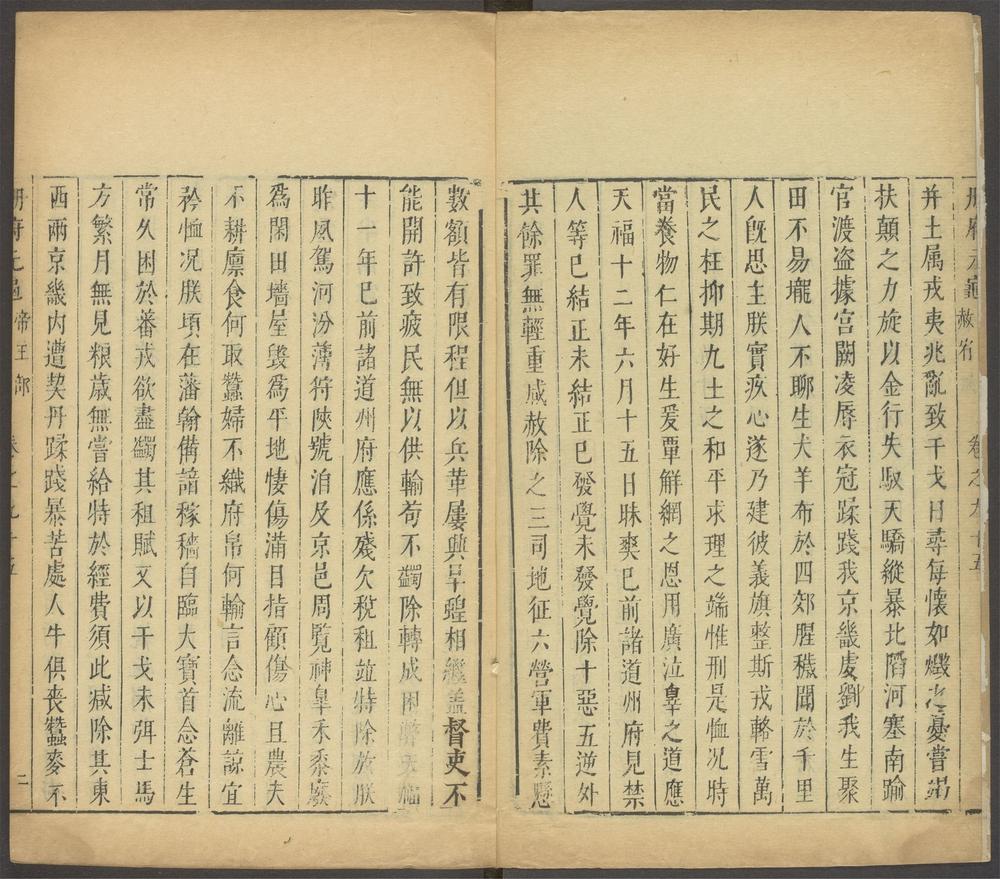 冊府元龜 赦宥 卷之九十五
并土属戎夷兆亂致干戈日尋每懷如燬之憂嘗莭
扶顛之力旋以金行失馭天驕縱暴比隋河塞南踰
官渡盗據宫闕凌辱衣冠蹂踐我京畿虔劉我生聚
田不易壠人不聊生犬羊布於四郊腥穢聞於千里
人旣思主朕實疚心遂乃建彼義旗整斯戎輅雪萬
民之枉抑期九土之和平求理之端惟刑是恤况時
當養物仁在好生爰覃解網之恩用廣泣辜之道應
天福十二年六月十五日昧爽已前諸道州府見禁
人等已結正未結正已發覺未發覺除十惡五逆外
其餘罪無輕重咸赦除之三司地征六營軍費素懸
數額皆有限程但以兵革屢興旱蝗相繼盖督吏不
能開許致疲民無以供輸苟不蠲除轉成困弊天福
十一年已前諸道州府應係殘欠稅租並特除放朕
昨夙駕河汾薄狩陜虢洎及京邑周覧神臯禾黍廢
爲閑田墻屋毀爲平地悽傷滿目指顧傷心且農夫
不耕廪食何取蠶婦不織府帛何輸言念流離諒宜
矜恤况朕頃在藩翰備諳稼穡自臨大寶首念蒼生
常久困於蕃戎欲盡蠲其租賦又以干戈未弭士馬
方繁月無見粮歲無嘗給特於經費須此减除其東
西兩京畿内遭契丹蹂踐暴苦處人牛俱喪蠶麥不
冊府元龜 帝王部 卷之九十五 二